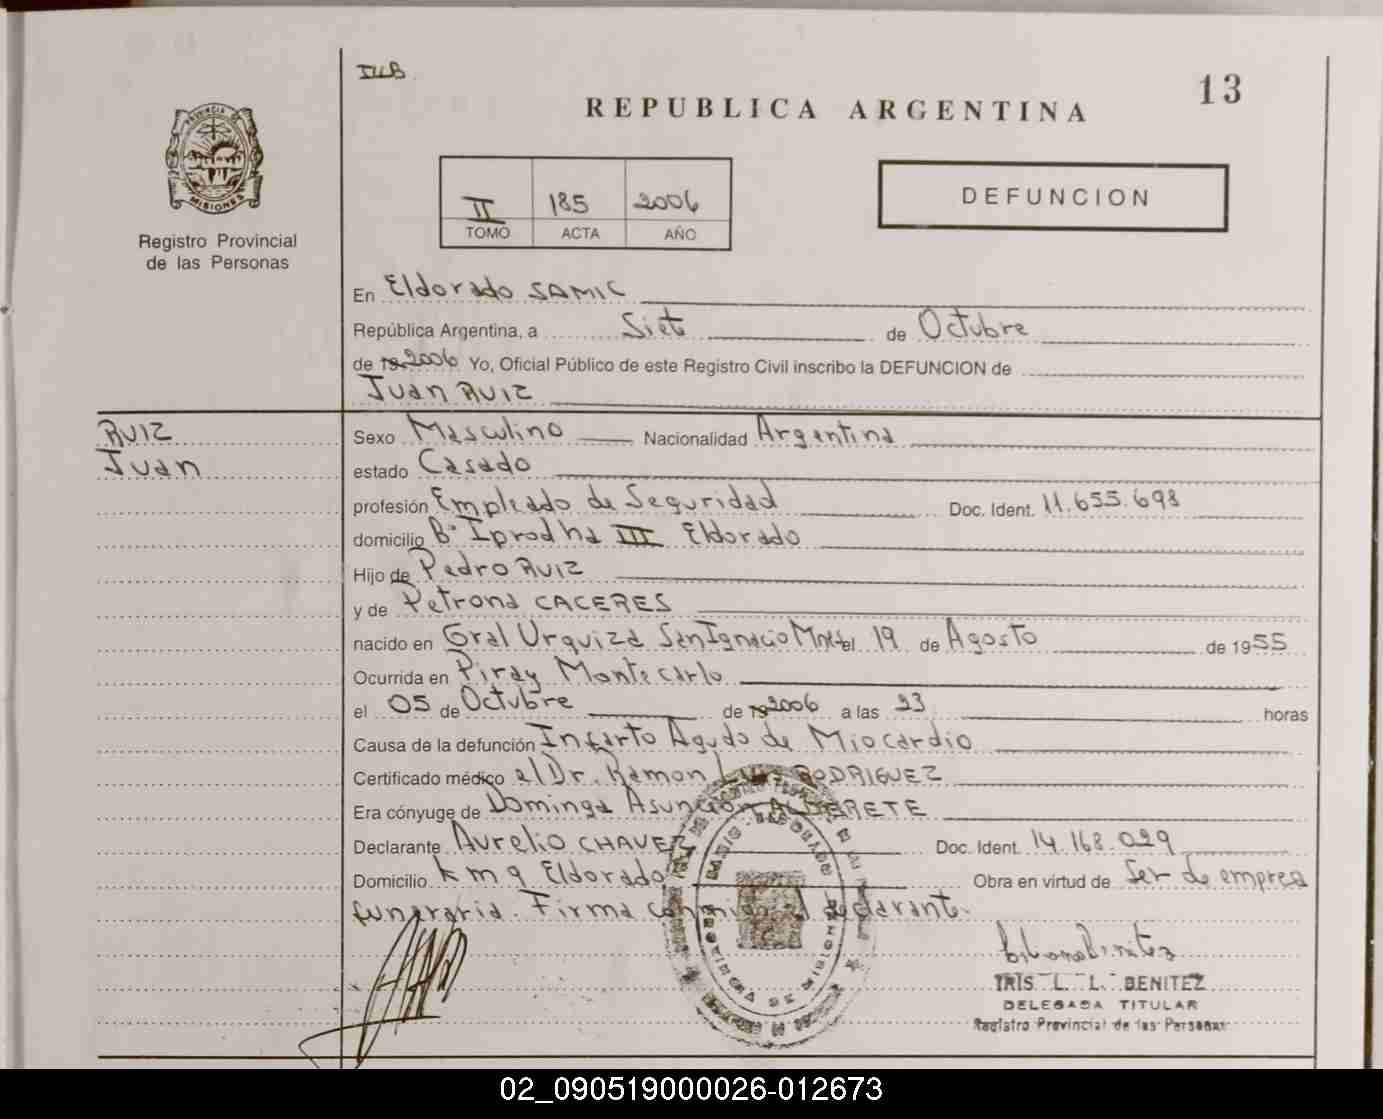 ILLB
13
REPUBLICA ARGENTINA
PROVINCIA DE MISIONES
Registro Provincial
de las Personas
II 185 2006
TOMO ACTA AÑO
DEFUNCION
En Eldorado SAMIC
República Argentina, a Siete de Octubre
de 19 2006 Yo, Oficial Público de este Registro Civil inscribo la DEFUNCION de
Juan RUIZ
RUIZ
Juan
Sexo Masculino Nacionalidad Argentina
estado Casado
profesión Empleado de Seguridad Doc. Ident. 11.655.698
domicilio Bº Iprodha III Eldorado
Hijo de Pedro RUIZ
y de Petrona CACERES
nacido en Gral Urquiza San Ignacio Mnes el 19 de Agosto de 1955
Ocurrida en Piray Montecarlo
el 05 de Octubre de 19 2006 a las 23 horas
Causa de la defunción Infarto Agudo de Miocardio
Certificado médico el Dr. Ramon Luis RODRIGUEZ
Era cónyuge de Dominga Asunción ALDERETE
Declarante Aurelio CHAVEZ Doc. Ident. 14.168.029
Domicilio km 9 Eldorado Obra en virtud de Ser de empresa
funeraria. Firma conmigo el declarante.
IRIS L. L. BENITEZ
DELEGADA TITULAR
Registro Provincial de las Personas
02_090519000026-012673